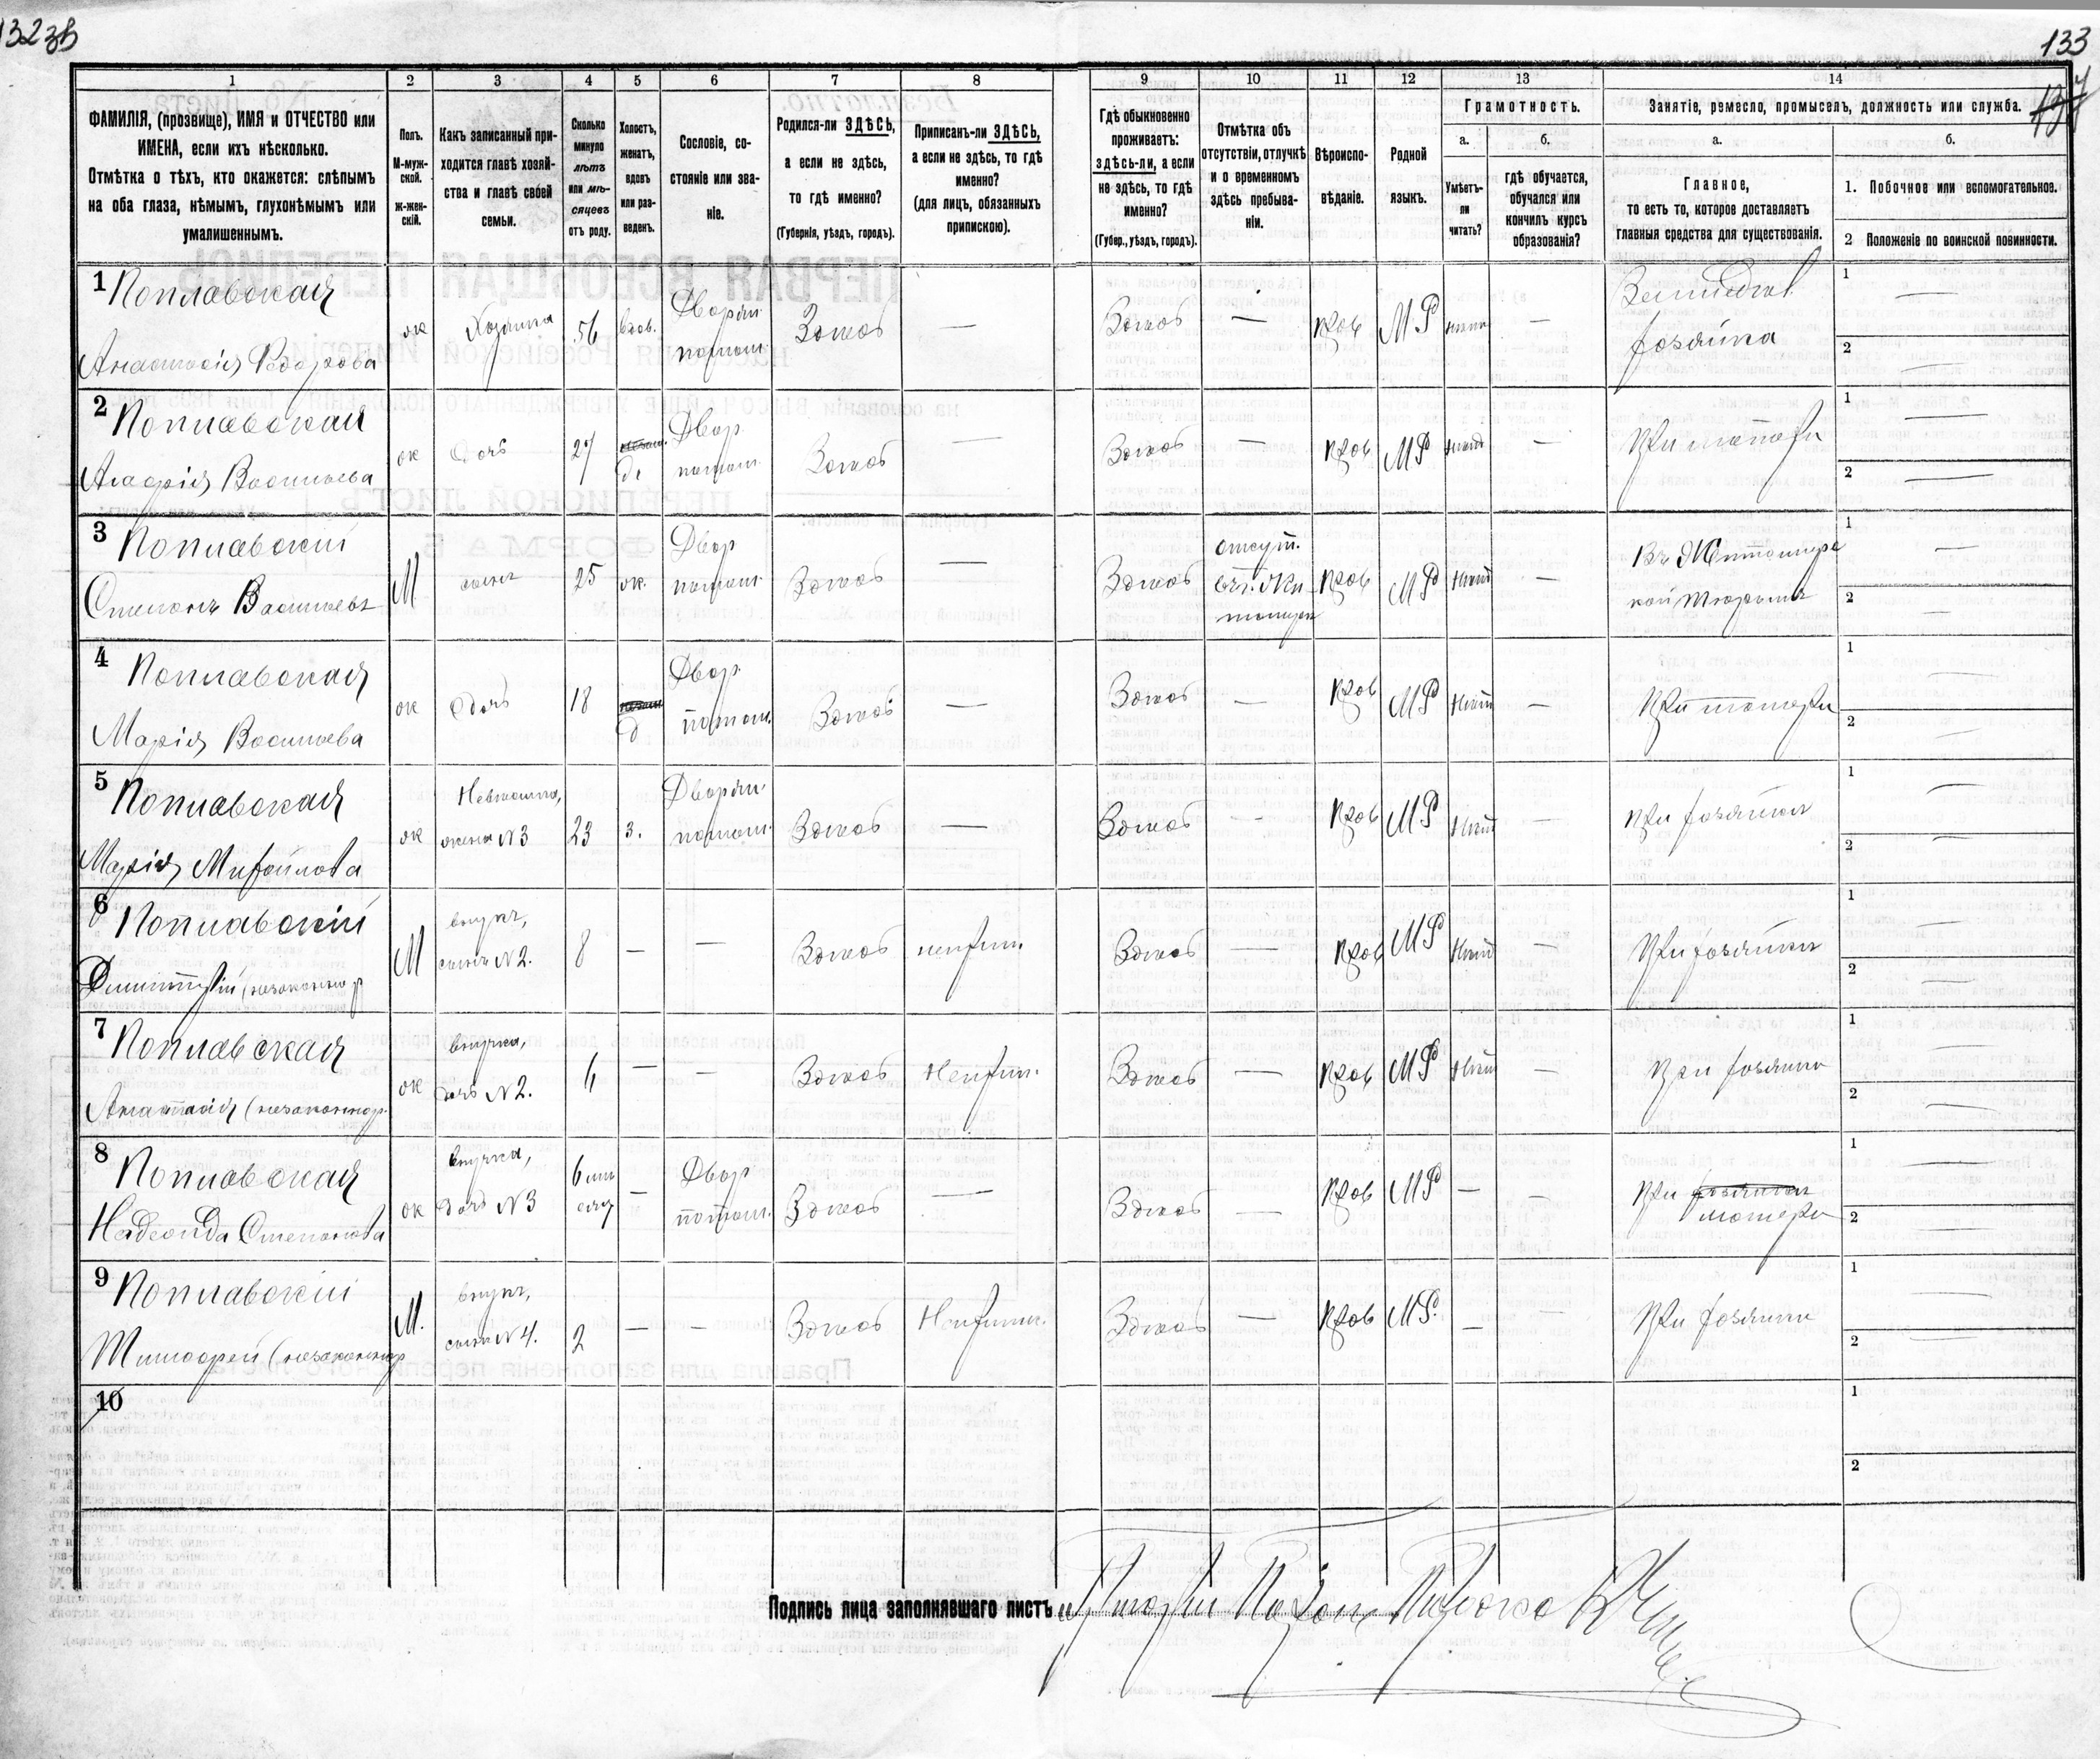 132зв
133
1 2 3 4 5 6 7 8 9 10 11 12 13 14
ФАМИЛІЯ, (прозвище), ИМЯ и ОТЧЕСТВО или ИМЕНА, если ихъ нѣсколько.
Отмѣтка о тѣхъ, кто окажется: слѣпымъ на оба глаза, нѣмымъ, глухонѣмымъ или умалишеннымъ.
Полъ. М-муж-ской. ж-жен-скій.
Какъ записанный при-ходится главѣ хозяй-ства и главѣ своей семьи.
Сколько минуло лѣтъ или мѣ-сяцевъ отъ роду.
Холостъ, женатъ, вдовъ или раз-веденъ.
Сословіе, со-стояніе или зва-ніе.
Родился-ли ЗДѢСЬ, а если не здѣсь, то гдѣ именно?
(Губернія, уѣздъ, городъ).
Приписанъ-ли ЗДѢСЬ, а если не здѣсь, то гдѣ именно?
(для лицъ, обязанныхъ припискою).
Гдѣ обыкновенно проживаетъ: здѣсь-ли, а если не здѣсь, то гдѣ именно?
(Губер., уѣздъ, городъ).
Отмѣтка объ отсутствіи, отлучкѣ и о временномъ здѣсь пребыва-ніи.
Вѣроиспо-вѣданіе.
Родной языкъ.
Грамотность.
а. Умѣетъ-ли читать?
б. гдѣ обучается, обучался или кончилъ курсъ образованія?
Занятіе, ремесло, промыселъ, должность или служба.
а. Главное, то есть то, которое доставляетъ главныя средства для существованія.
б.
1. Побочное или вспомогательное.
2 Положеніе по воинской повинности.
1 Поплавская Анастасія Федорова ж Хозяйка 56 вдов. Дворян. потом. Здесь — Здесь — прав МР — хозяйка 1 — 2 —
2 Поплавская Васильева ж дочь 27 Двор. потом. Здесь — Здесь — прав МР нѣтъ — При матери 1 — 2 —
3 Поплавскій Степанъ Васильевъ М сынъ 25 ж. Двор потом. Здесь — Здесь отсут. прав МР нѣтъ — Въ 1 — 2 —
4 Поплавская Марія Васильева ж дочь 18 д Двор. потом. Здесь — Здесь — прав МР нѣтъ — При матери 1 — 2 —
5 Поплавская Марія Михайлова ж Невѣстка, жена №3 23 з. Дворян. потом. Здесь — Здесь — прав МР нѣтъ — при хозяйки 1 — 2 —
6 Поплавскій Димитрій (незаконнор М внукъ, сынъ №2. 8 — — Здесь Здесь — прав МР нѣтъ — При хозяйки 1 — 2 —
7 Поплавская Анастасія (незаконнор. ж внучка, дочь №2. 4 — — Здесь Здесь — прав МР нѣтъ — При хозяйки 1 — 2 —
8 Поплавская Надежда Степанова ж внучка, дочь №3 6 мѣсяц — Двор потом. Здесь — Здесь — прав МР — — При матери 1 — 2 —
9 Поплавскій Тимофей (незаконнор М. внукъ, сынъ №4. 2 — — Здесь Здесь — прав МР. — — При хозяйки 1 — 2 —
10 1 2
Подпись лица заполнявшаго листъ